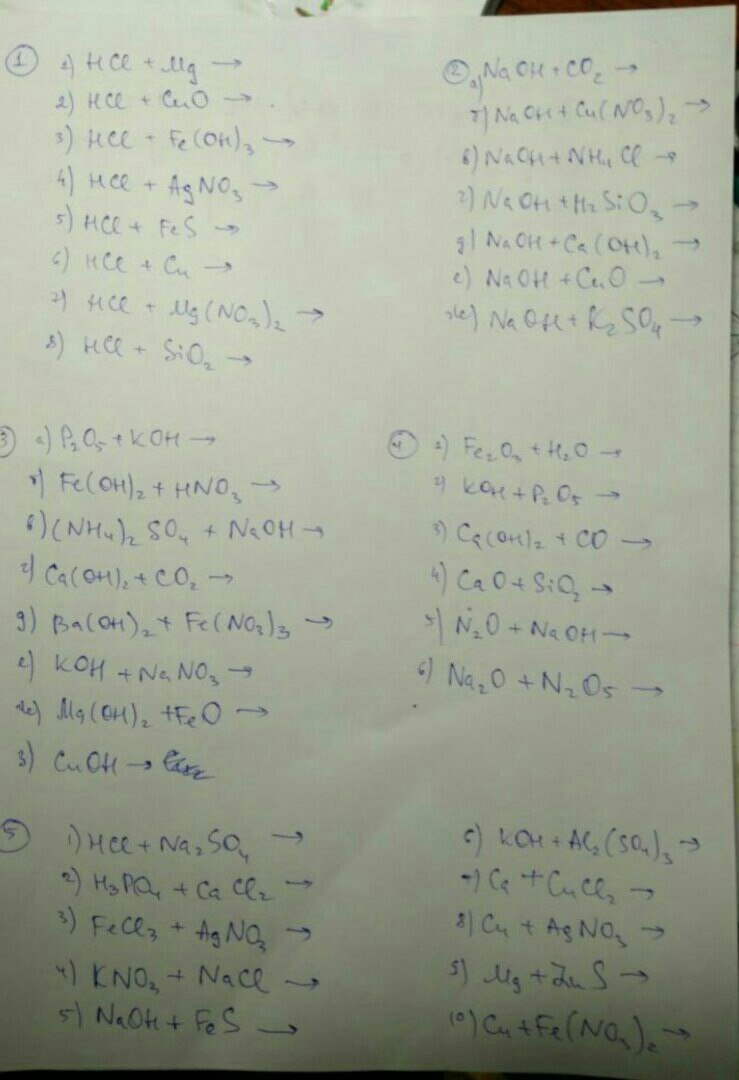 ① 1) HCl + Mg →
2) HCl + CuO →
3) HCl + Fe(OH)₃ →
4) HCl + AgNO₃ →
5) HCl + FeS →
6) HCl + Cu →
7) HCl + Mg(NO₃)₂ →
8) HCl + SiO₂ →
② а) NaOH + CO₂ →
б) NaOH + Cu(NO₃)₂ →
в) NaOH + NH₄Cl →
г) NaOH + H₂SiO₃ →
д) NaOH + Ca(OH)₂ →
е) NaOH + CuO →
же) NaOH + K₂SO₄ →
③ а) P₂O₅ + KOH →
б) Fe(OH)₂ + HNO₃ →
в) (NH₄)₂SO₄ + NaOH →
г) Ca(OH)₂ + CO₂ →
д) Ba(OH)₂ + Fe(NO₃)₃ →
е) KOH + NaNO₃ →
же) Mg(OH)₂ + FeO →
з) CuOH →
④ 1) Fe₂O₃ + H₂O →
2) KOH + P₂O₅ →
3) Ca(OH)₂ + CO →
4) CaO + SiO₂ →
5) N₂O + NaOH →
6) Na₂O + N₂O₅ →
⑤ 1) HCl + Na₂SO₄ →
2) H₃PO₄ + CaCl₂ →
3) FeCl₃ + AgNO₃ →
4) KNO₃ + NaCl →
5) NaOH + FeS →
6) KOH + Al₂(SO₄)₃ →
7) Ca + CuCl₂ →
8) Cu + AgNO₃ →
9) Mg + ZnS →
10) Cu + Fe(NO₃)₂ →